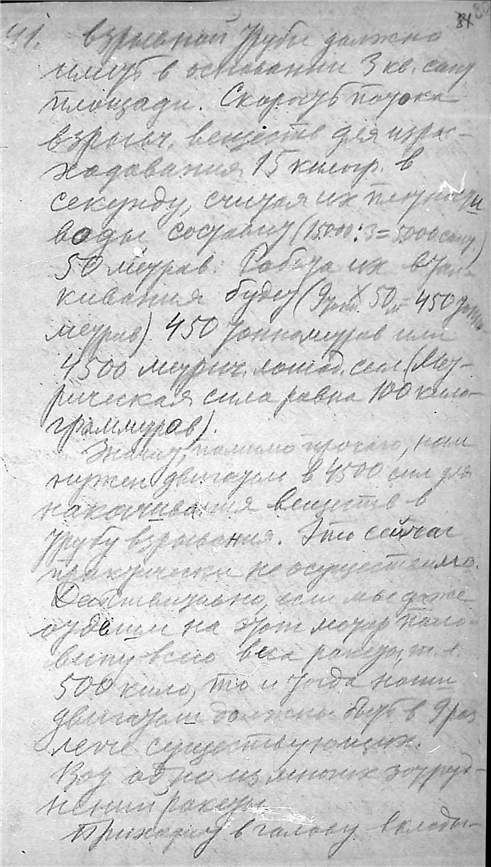 81
41. взрывной трубы должно
иметь в основании 3 кв. сант
площади. Скорость потока
взрыв. веществ для израс-
ходования 15 килогр. в
секунду, считая их плотность
воды, составит (15000:3=5000 сант)
50 метров. Работа их втал-
кивания будет (9тон.×50м=450 тонно
метров) 450 тоннометров или
4500 метрич. лошад. сил (Мет-
рическая сила равна 100 кило-
граммометров).
Значит, помимо прочего, нам
нужен двигатель в 4500 сил для
накачивания веществ в
трубу взрывания. Это сейчас
практически не осуществимо.
Действительно, если мы даже
отдадим на этот мотор поло-
вину всего веса ракеты, т.е.
500 кило, то и тогда наши
двигатели должны быть в 9 раз
легче существующих.
Вот одно из многих затруд-
нений ракеты
Приходит в голову вклады-